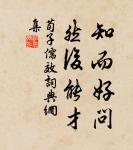 知而好問
然後能才
荀子儒效詞典網
集